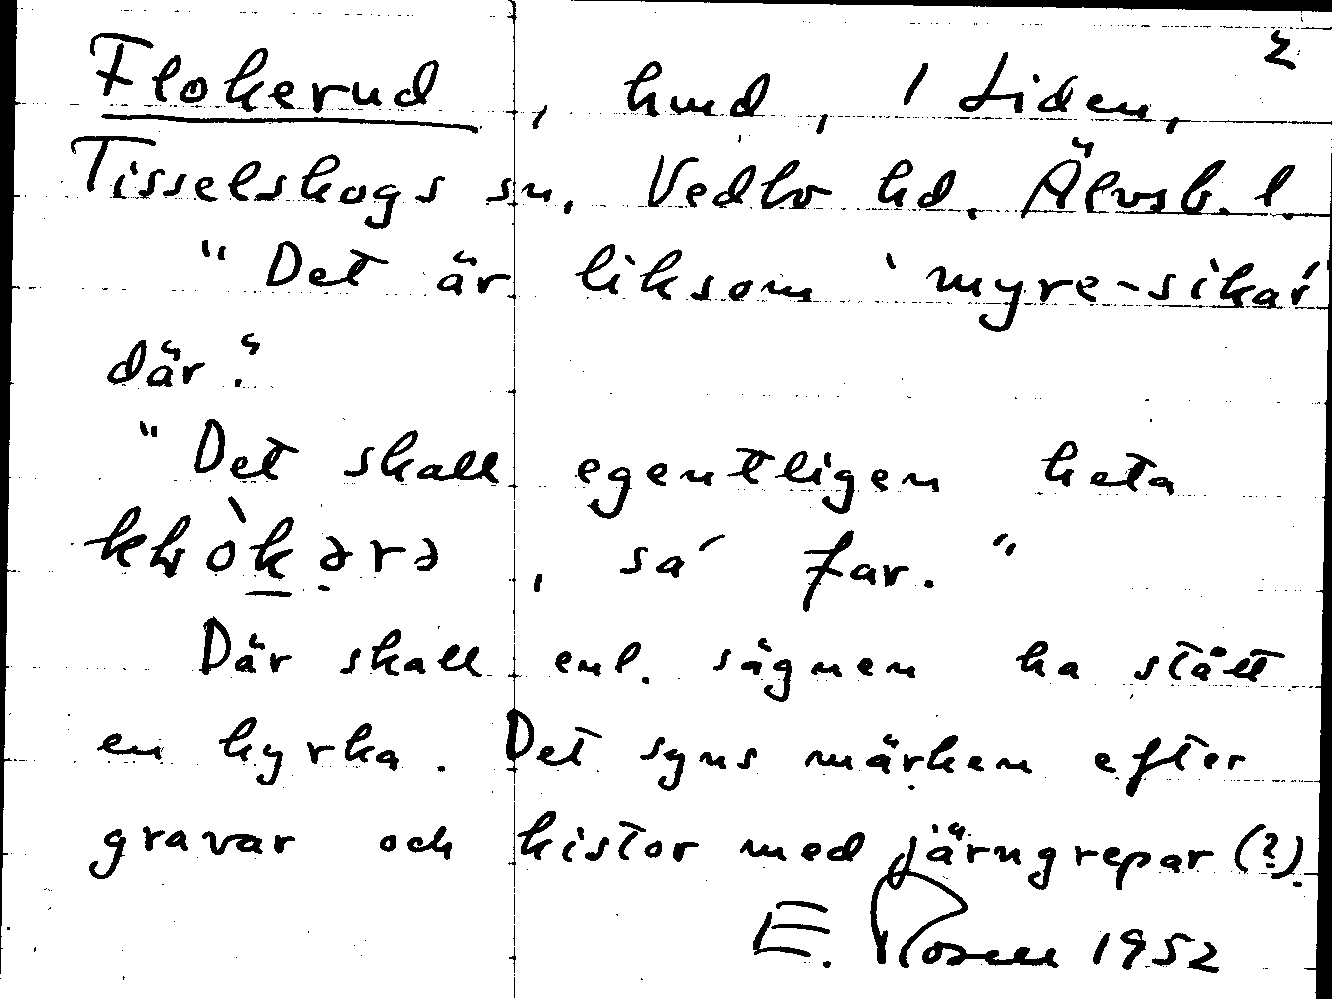 2
Flokerud, kmd, 1 Liden,
Tisselskogs sn, Vedbo hd. Älvsb. l.
"Det är liksom 'myre-sikar'
där."
"Det skall egentligen heta
, sa' far."
Där skall enl. sägnen ha stått
en kyrka. Det syns märken efter
gravar och kistor med järngrepar (?)
E. Rosell 1952